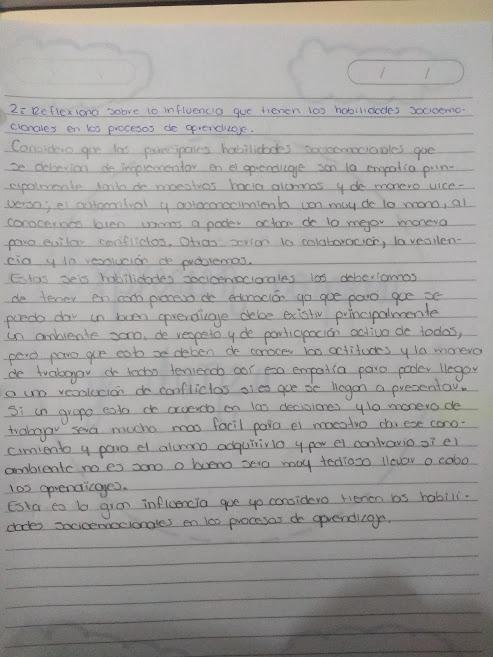 2: Reflexiona sobre la influencia que tienen las habilidades socioemo-
cionales en los procesos de aprendizaje.
Considero que las principales habilidades socioemocionales que
se deberian de implementar en el aprendizaje son la empatia prin-
cipalmente tanto de maestros hacia alumnos y de manera vice-
versa; el autocontrol y autoconocimiento van muy de la mano, al
conocernos bien vamos a poder actuar de la mejor manera
para evitar conflictos. Otras serian la colaboración, la resilen-
cia y la resolución de problemas.
Estas seis habilidades socioemocionales las deberiamos
de tener en cada proceso de educación ya que para que se
pueda dar un buen aprendizaje debe existir principalmente
un ambiente sano, de respeto y de participación activa de todos,
pero para que esto se deben de conocer las actitudes y la manera
de trabajar de todos teniendo asi esa empatia para poder llegar
a una resolución de conflictos si es que se llegan a presentar.
Si un grupo esta de acuerdo en las decisiones y la manera de
trabajar sera mucho mas facil para el maestro dar ese cono-
cimiento y para el alumno adquirirlo y por el contrario si el
ambiente no es sano o bueno sera muy tedioso llevar a cabo
los aprendizajes.
Esta es la gran influencia que yo considero tienen las habili-
dades socioemocionales en los procesos de aprendizaje.